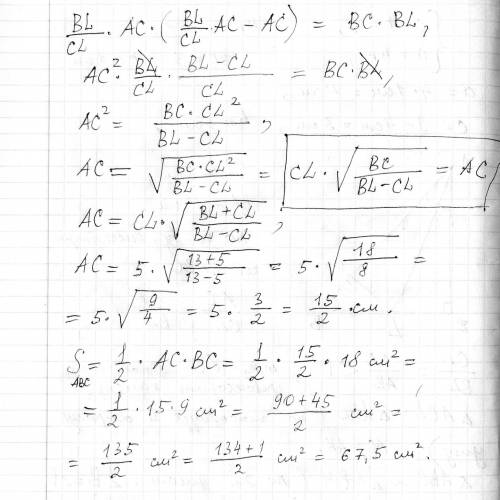 BL/CL · AC · (BL/CL · AC − AC) = BC · BL,
AC² · BL/CL · (BL − CL)/CL = BC · BL,
AC² = (BC · CL²)/(BL − CL),
AC = √((BC · CL²)/(BL − CL)) = CL · √(BC/(BL − CL)) = AC,
AC = CL · √((BL + CL)/(BL − CL)),
AC = 5 · √((13 + 5)/(13 − 5)) = 5 · √(18/8) =
= 5 · √(9/4) = 5 · 3/2 = 15/2 · см.
S_ABC = 1/2 · AC · BC = 1/2 · 15/2 · 18 см² =
= 1/2 · 15 · 9 см² = (90 + 45)/2 см² =
= 135/2 см² = (134 + 1)/2 см² = 67,5 см².